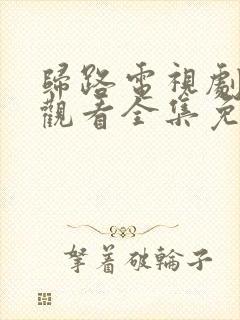 歸路電視劇
觀看全集免
拏着破輪子